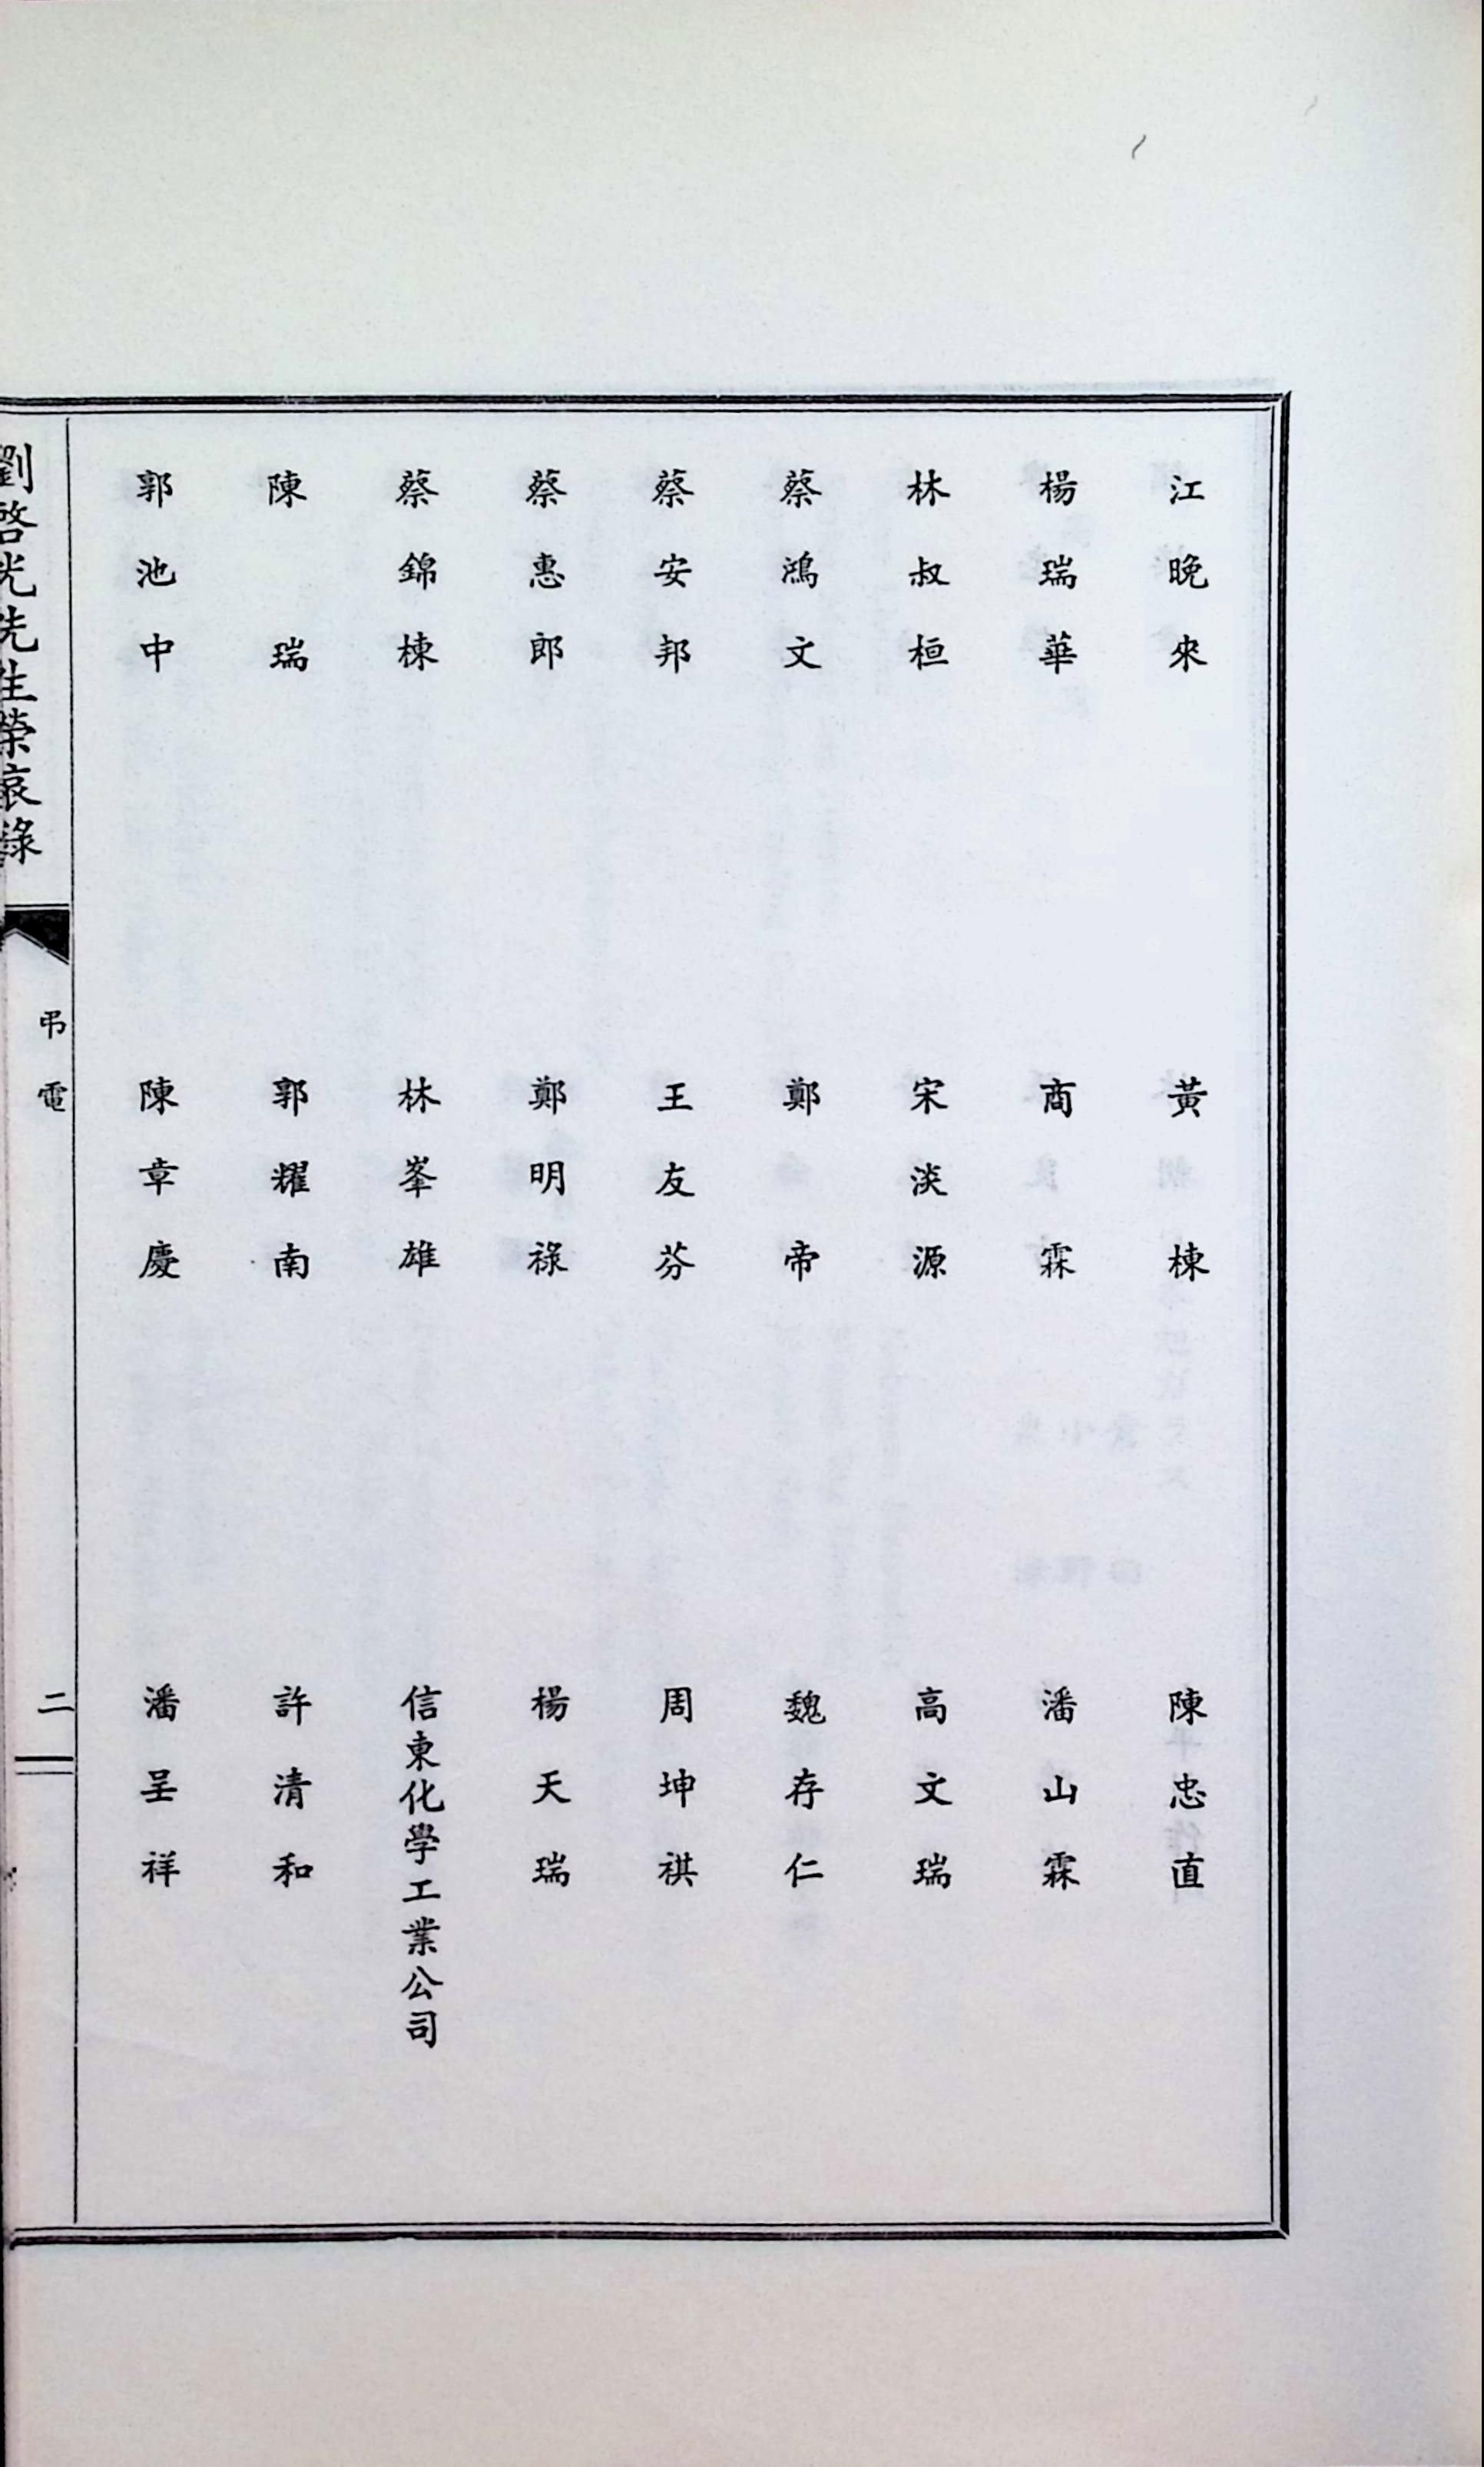 江晚來 黃棟 陳忠直
楊瑞華 商霖 潘山霖
林叔桓 宋淡源 高文瑞
蔡鴻文 鄭帝 魏存仁
蔡安邦 王友芬 周坤祺
蔡惠郎 鄭明祿 楊天瑞
蔡錦棟 林峯雄 信東化學工業公司
陳瑞 郭耀南 許清和
郭池中 陳章慶 潘呈祥
劉啓光先生榮哀錄 弔電 二